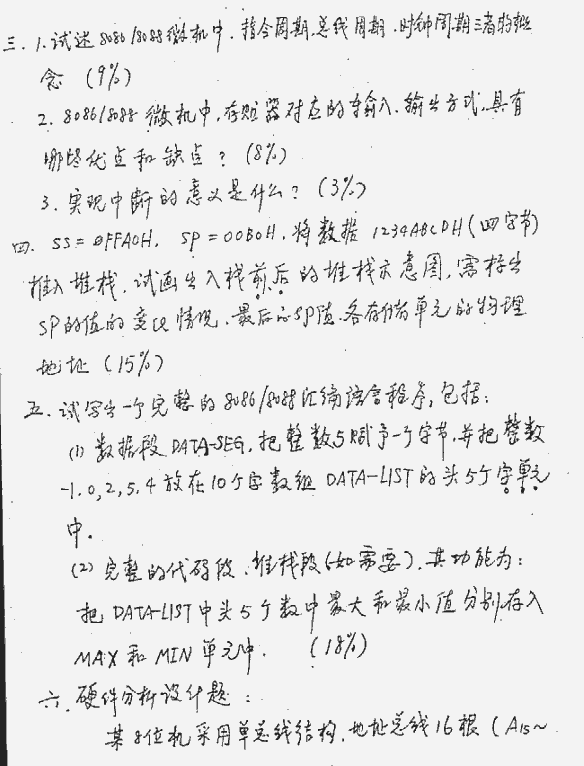 三. 1. 试述 8086/8088 微机中, 指令周期、总线周期、时钟周期三者的概
念 (9%)
2. 8086/8088 微机中, 存贮器对应的输入、输出方式, 具有
哪些优点和缺点? (8%)
3. 实现中断的意义是什么? (3%)
四. SS=0FFA0H, SP=00B0H, 将数据 1234ABCDH (四字节)
推入堆栈, 试画出入栈前、后的堆栈示意图, 需标出
SP的值的变化情况、最后的SP值、各存储单元的物理
地址 (15%)
五. 试写出一个完整的 8086/8088 汇编语言程序, 包括:
(1) 数据段 DATA-SEG, 把整数5赋予一个字节, 并把整数
-1.0, 2, 5, 4 放在10个字数组 DATA-LIST 的头5个字单元
中.
(2) 完整的代码段、堆栈段 (如需要), 其功能为:
把 DATA-LIST 中头5个数中最大和最小值分别存入
MAX 和 MIN 单元中. (18%)
六. 硬件分析设计题:
某8位机采用单总线结构, 地址总线16根 (A15~